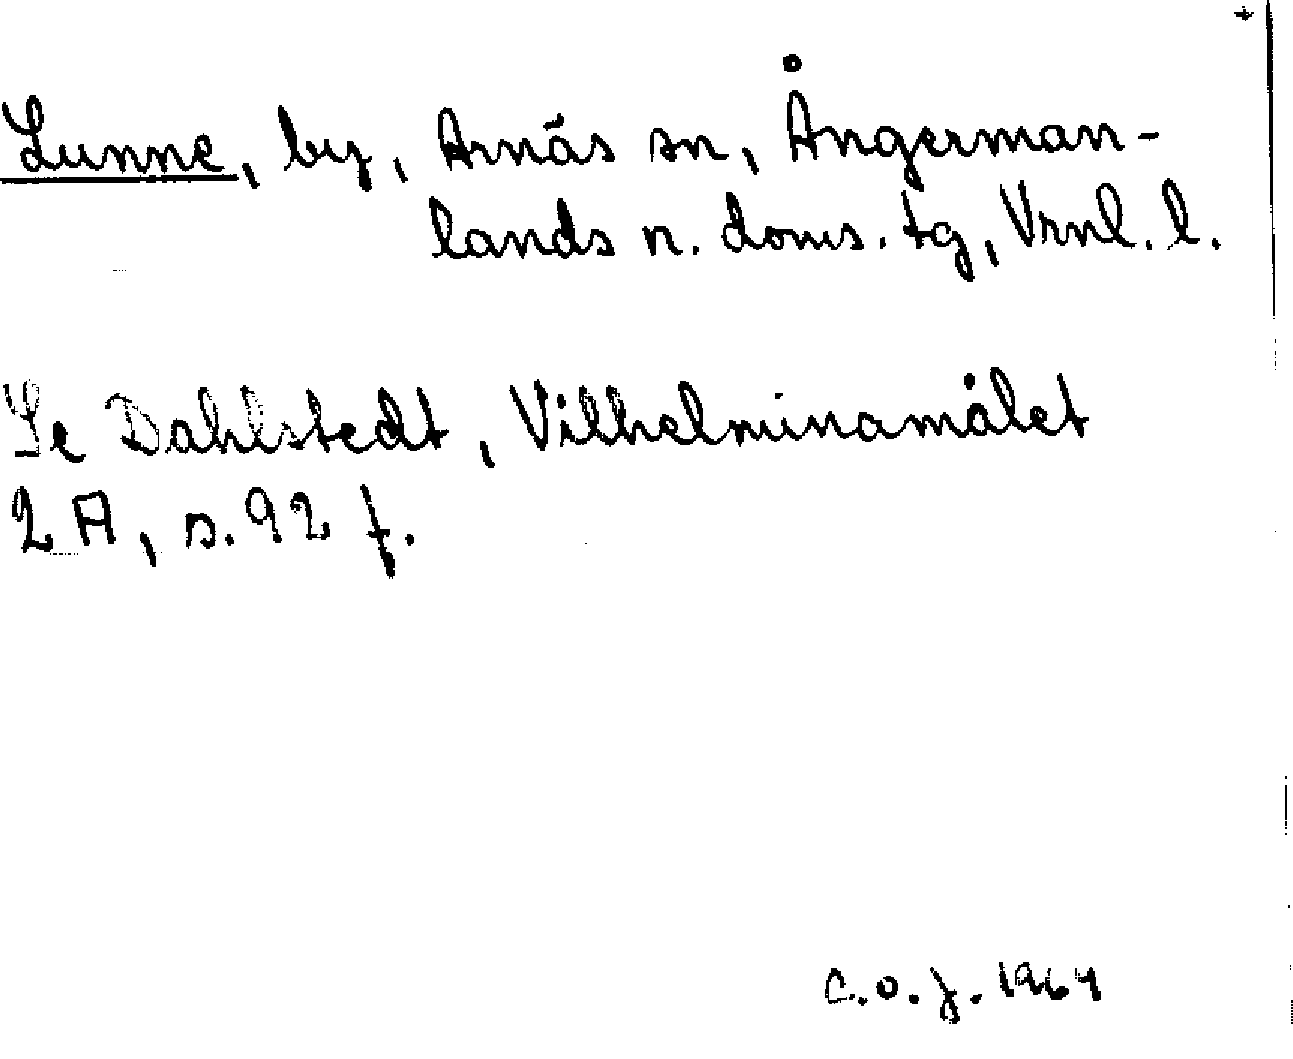 Lunne, by, Arnäs sn, Ångerman-
lands n. doms. tg, Vrnl. l.
Se Dahlstedt, Vilhelminamålet
2 A, s. 92 f.
C.o.j. 1964